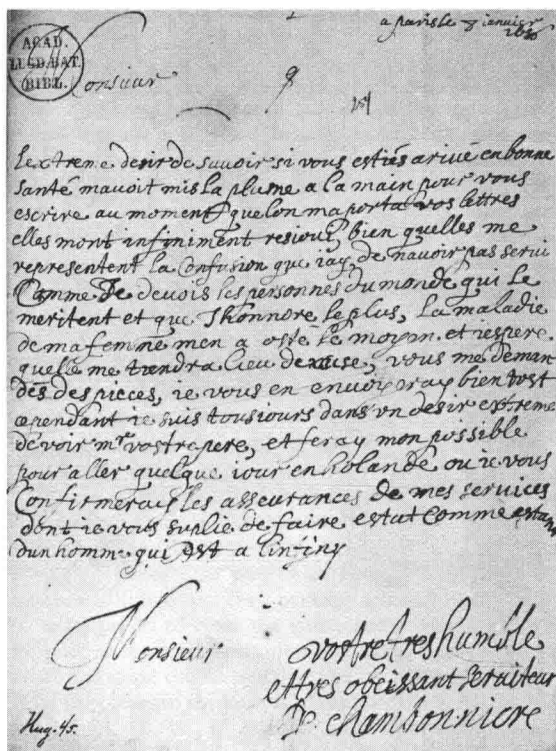 a paris le 8 janvier
ACAD.
LUGD. BAT.
BIBL.
Monsieur
Lextreme desir de savoir si vous estiés arivé en bonne
santé mavoit mis la plume a la main pour vous
escrire au moment que lon ma porta vos lettres
elles mont infiniment resiouï, bien quelles me
representent la Confusion que iay de navoir pas servi
Comme Je devois les personnes du monde qui le
meritent et que Jhonnore le plus, La maladie
de ma femme men a osté le moyen et iespere
quelle me tiendra lieu dexcuse, vous me deman
dés des pieces, ie vous en envoiray bien tost
cependant ie suis tousiours dans vn desir extreme
de voir mr. vostre pere, et feray mon possible
pour aller quelque iour en holande ou ie vous
Confirmerai les asseurances de mes services
dont ie vous suplie de faire estat Comme estant
dun homme qui est a linfiny
Monsieur
vostre tres humble
et tres obeissant serviteur
chambonniere
Hug. 45.